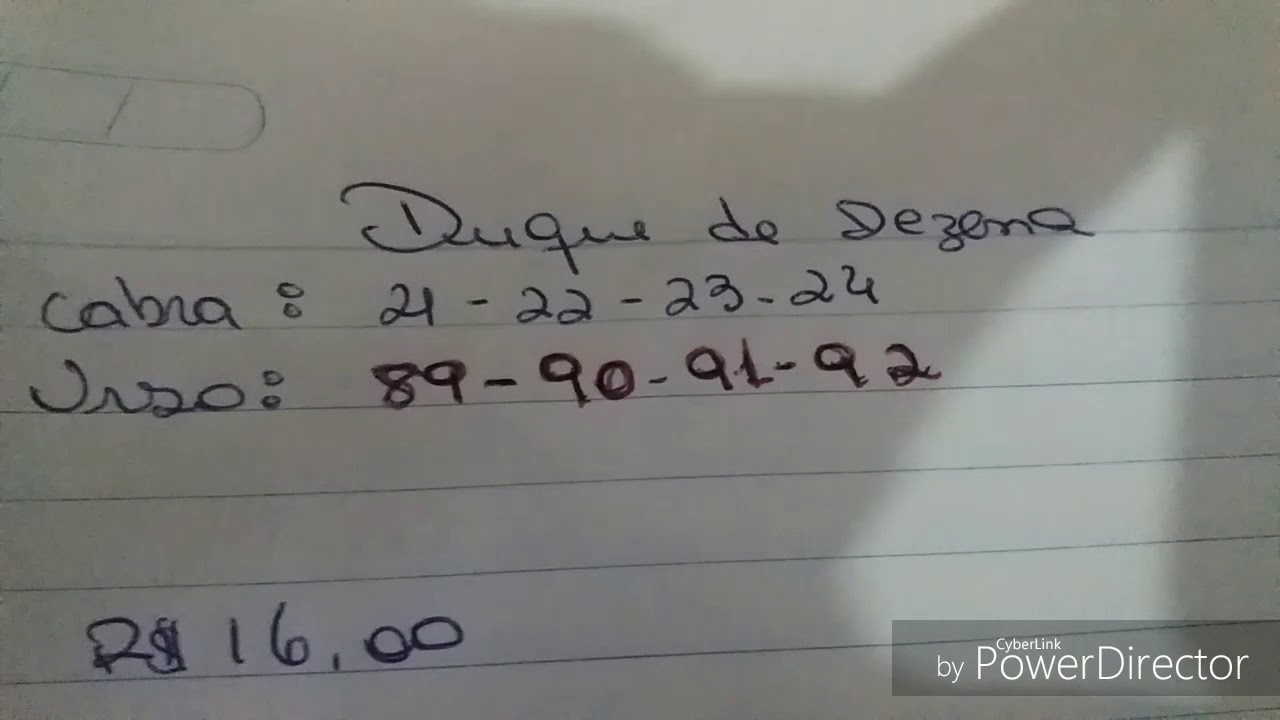 Duque de Dezena
Cabra: 21 - 22 - 23 - 24
Urso: 89 - 90 - 91 - 92
R$ 16,00
CyberLink
by PowerDirector